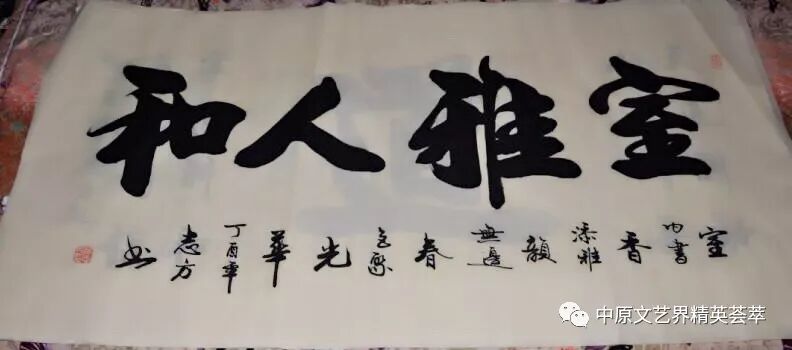 室雅人和
室内書香添雅韻無邊春色光華丁酉年志方书
中原文艺界精英荟萃